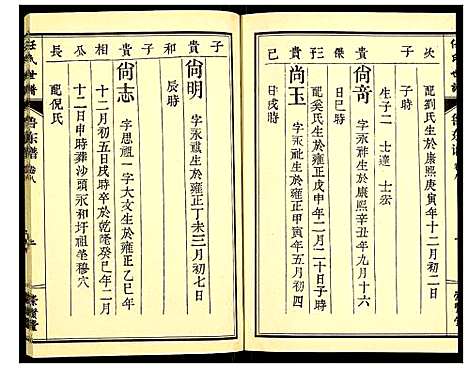 次子
配劉氏生於康熙庚寅年十二月初二日
生子二 士達 士宏
貴傑
尙奇
字永祺生於康熙辛丑年九月十六
日巳時
貴玨
配奚氏生於雍正戊申年二月二十日子時
尚玉
字永祉生於雍正甲寅年五月初四
日戌時
子
貴和
尙明
字永祺生於雍正丁未三月初七日
辰時
子
貴相
尙志
字思祖一字大文生於雍正乙巳年
十二月初五日丑時卒於乾隆癸巳年二月
公長
十二日申時葬沙頭永和圩祖塋穆穴
配倪氏
任氏世譜
魯东谱
卷八